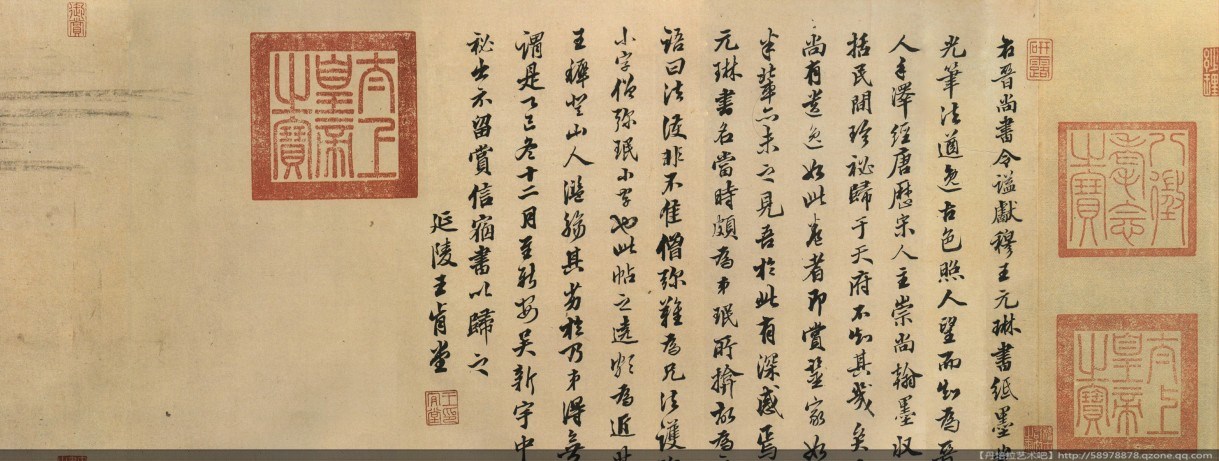 妙理
八徵耄念之寶
太上皇帝之寶
研露
右晉尚書令謚獻穆王元琳書紙墨
光筆法遒逸古色照人望而知為晉
人手澤經唐歷宋人主崇尚翰墨収
括民間珍祕歸于天府不知其幾矣
尚有遺逸如此卷者即賞鑒家如
米輩亦未之見吾於此有深感焉
元琳書名當時頗為弟珉所揜故為
語曰法護非不佳僧彌難為兄法護
小字僧彌珉小字也此帖之遠為近
王穉登山人濫觴其劣於乃弟得無
謂是乙巳冬十二月至新安吳新宇中
祕出示留賞信宿書以歸之
延陵王肯堂
太上皇帝之寶
御賞
【丹培拉艺术吧】http://58978878.qzone.qq.com】